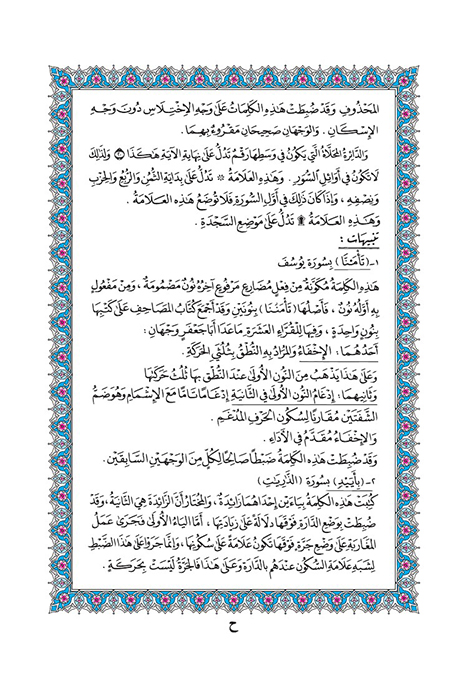 المَحْذُوفِ وَقَدْ ضُبِطَتْ هَذِهِ الكَلِمَاتُ عَلَىٰ وَجْهِ الِاخْتِلَاسِ دُونَ وَجْهِ
الإِسْكَانِ . وَالوَجْهَانِ صَحِيحَانِ مَقْرُوءٌ بِهِمَا .
وَالدَّائِرَةُ المُحَلَّاةُ الَّتِي يَكُونُ فِي وَسَطِهَا رَقْمٌ تَدُلُّ عَلَىٰ نِهَايَةِ الآيَةِ هَكَذَا وَلِذَلِكَ
لَا تَكُونُ فِي أَوَائِلِ السُّوَرِ . وَهَذِهِ العَلَامَةُ ۞ تَدُلُّ عَلَىٰ بِدَايَةِ الثُّمُنِ وَالرُّبُعِ وَالحِزْبِ
وَنِصْفِهِ ، وَإِذَا كَانَ ذَلِكَ فِي أَوَّلِ السُّورَةِ فَلَا تُوضَعُ هَذِهِ العَلَامَةُ .
وَهَذِهِ العَلَامَةُ ۩ تَدُلُّ عَلَىٰ مَوْضِعِ السَّجْدَةِ .
تنبيهات :
١- (تَأْمَ۬نَّا) بِسُورَةِ يُوسُفَ
هَذِهِ الكَلِمَةُ مُكَوَّنَةٌ مِنْ فِعْلٍ مُضَارِعٍ مَرْفُوعٍ آخِرُهُ نُونٌ مَضْمُومَةٌ ، وَمِنْ مَفْعُولٍ
بِهِ أَوَّلُهُ نُونٌ ، فَأَصْلُهَا (تَأْمَنُنَا) بِنُونَيْنِ وَقَدْ أَجْمَعَ كُتَّابُ المَصَاحِفِ عَلَىٰ كَتْبِهَا
بِنُونٍ وَاحِدَةٍ ، وَفِيهَا لِلْقُرَّاءِ العَشَرَةِ مَاعَدَا أَبَا جَعْفَرٍ وَجْهَانِ :
أَحَدُهُمَا : الإِخْفَاءُ وَالمُرَادُ بِهِ النُّطْقُ بِثُلُثَيِ الحَرَكَةِ .
وَعَلَىٰ هَذَا يَذْهَبُ مِنَ النُّونِ الأُولَىٰ عِنْدَ النُّطْقِ بِهَا ثُلُثُ حَرَكَتِهَا
وَثَانِيهِمَا : إِدْغَامُ النُّونِ الأُولَىٰ فِي الثَّانِيَةِ إِدْغَامًا تَامًّا مَعَ الإِشْمَامِ وَهُوَ ضَمُّ
الشَّفَتَيْنِ مُقَارِنًا لِسُكُونِ الحَرْفِ المُدْغَمِ .
وَالإِخْفَاءُ مُقَدَّمٌ فِي الأَدَاءِ .
وَقَدْ ضُبِطَتْ هَذِهِ الكَلِمَةُ ضَبْطًا صَالِحًا لِكُلٍّ مِنَ الوَجْهَيْنِ السَّابِقَيْنِ .
٢- (بِأَيْيدٍ) بِسُورَةِ (الذَّارِيَاتِ)
كُتِبَتْ هَذِهِ الكَلِمَةُ بِيَاءَيْنِ إِحْدَاهُمَا زَائِدَةٌ ، وَالمُخْتَارُ أَنَّ الزَّائِدَةَ هِيَ الثَّانِيَةُ ، وَقَدْ
ضُبِطَتْ بِوَضْعِ الدَّارَةِ فَوْقَهَا دَلَالَةً عَلَىٰ زِيَادَتِهَا ، أَمَّا اليَاءُ الأُولَىٰ فَجَرَىٰ عَمَلُ
المَغَارِبَةِ عَلَىٰ وَضْعِ جَرَّةٍ فَوْقَهَا تَكُونُ عَلَامَةً عَلَىٰ سُكُونِهَا ، وَإِنَّمَا جَرَوْا عَلَىٰ هَذَا الضَّبْطِ
لِشَبَهِ عَلَامَةِ السُّكُونِ عِنْدَهُمْ بِالدَّارَةِ وَعَلَىٰ هَذَا فَالجَرَّةُ لَيْسَتْ بِحَرَكَةٍ .
ح